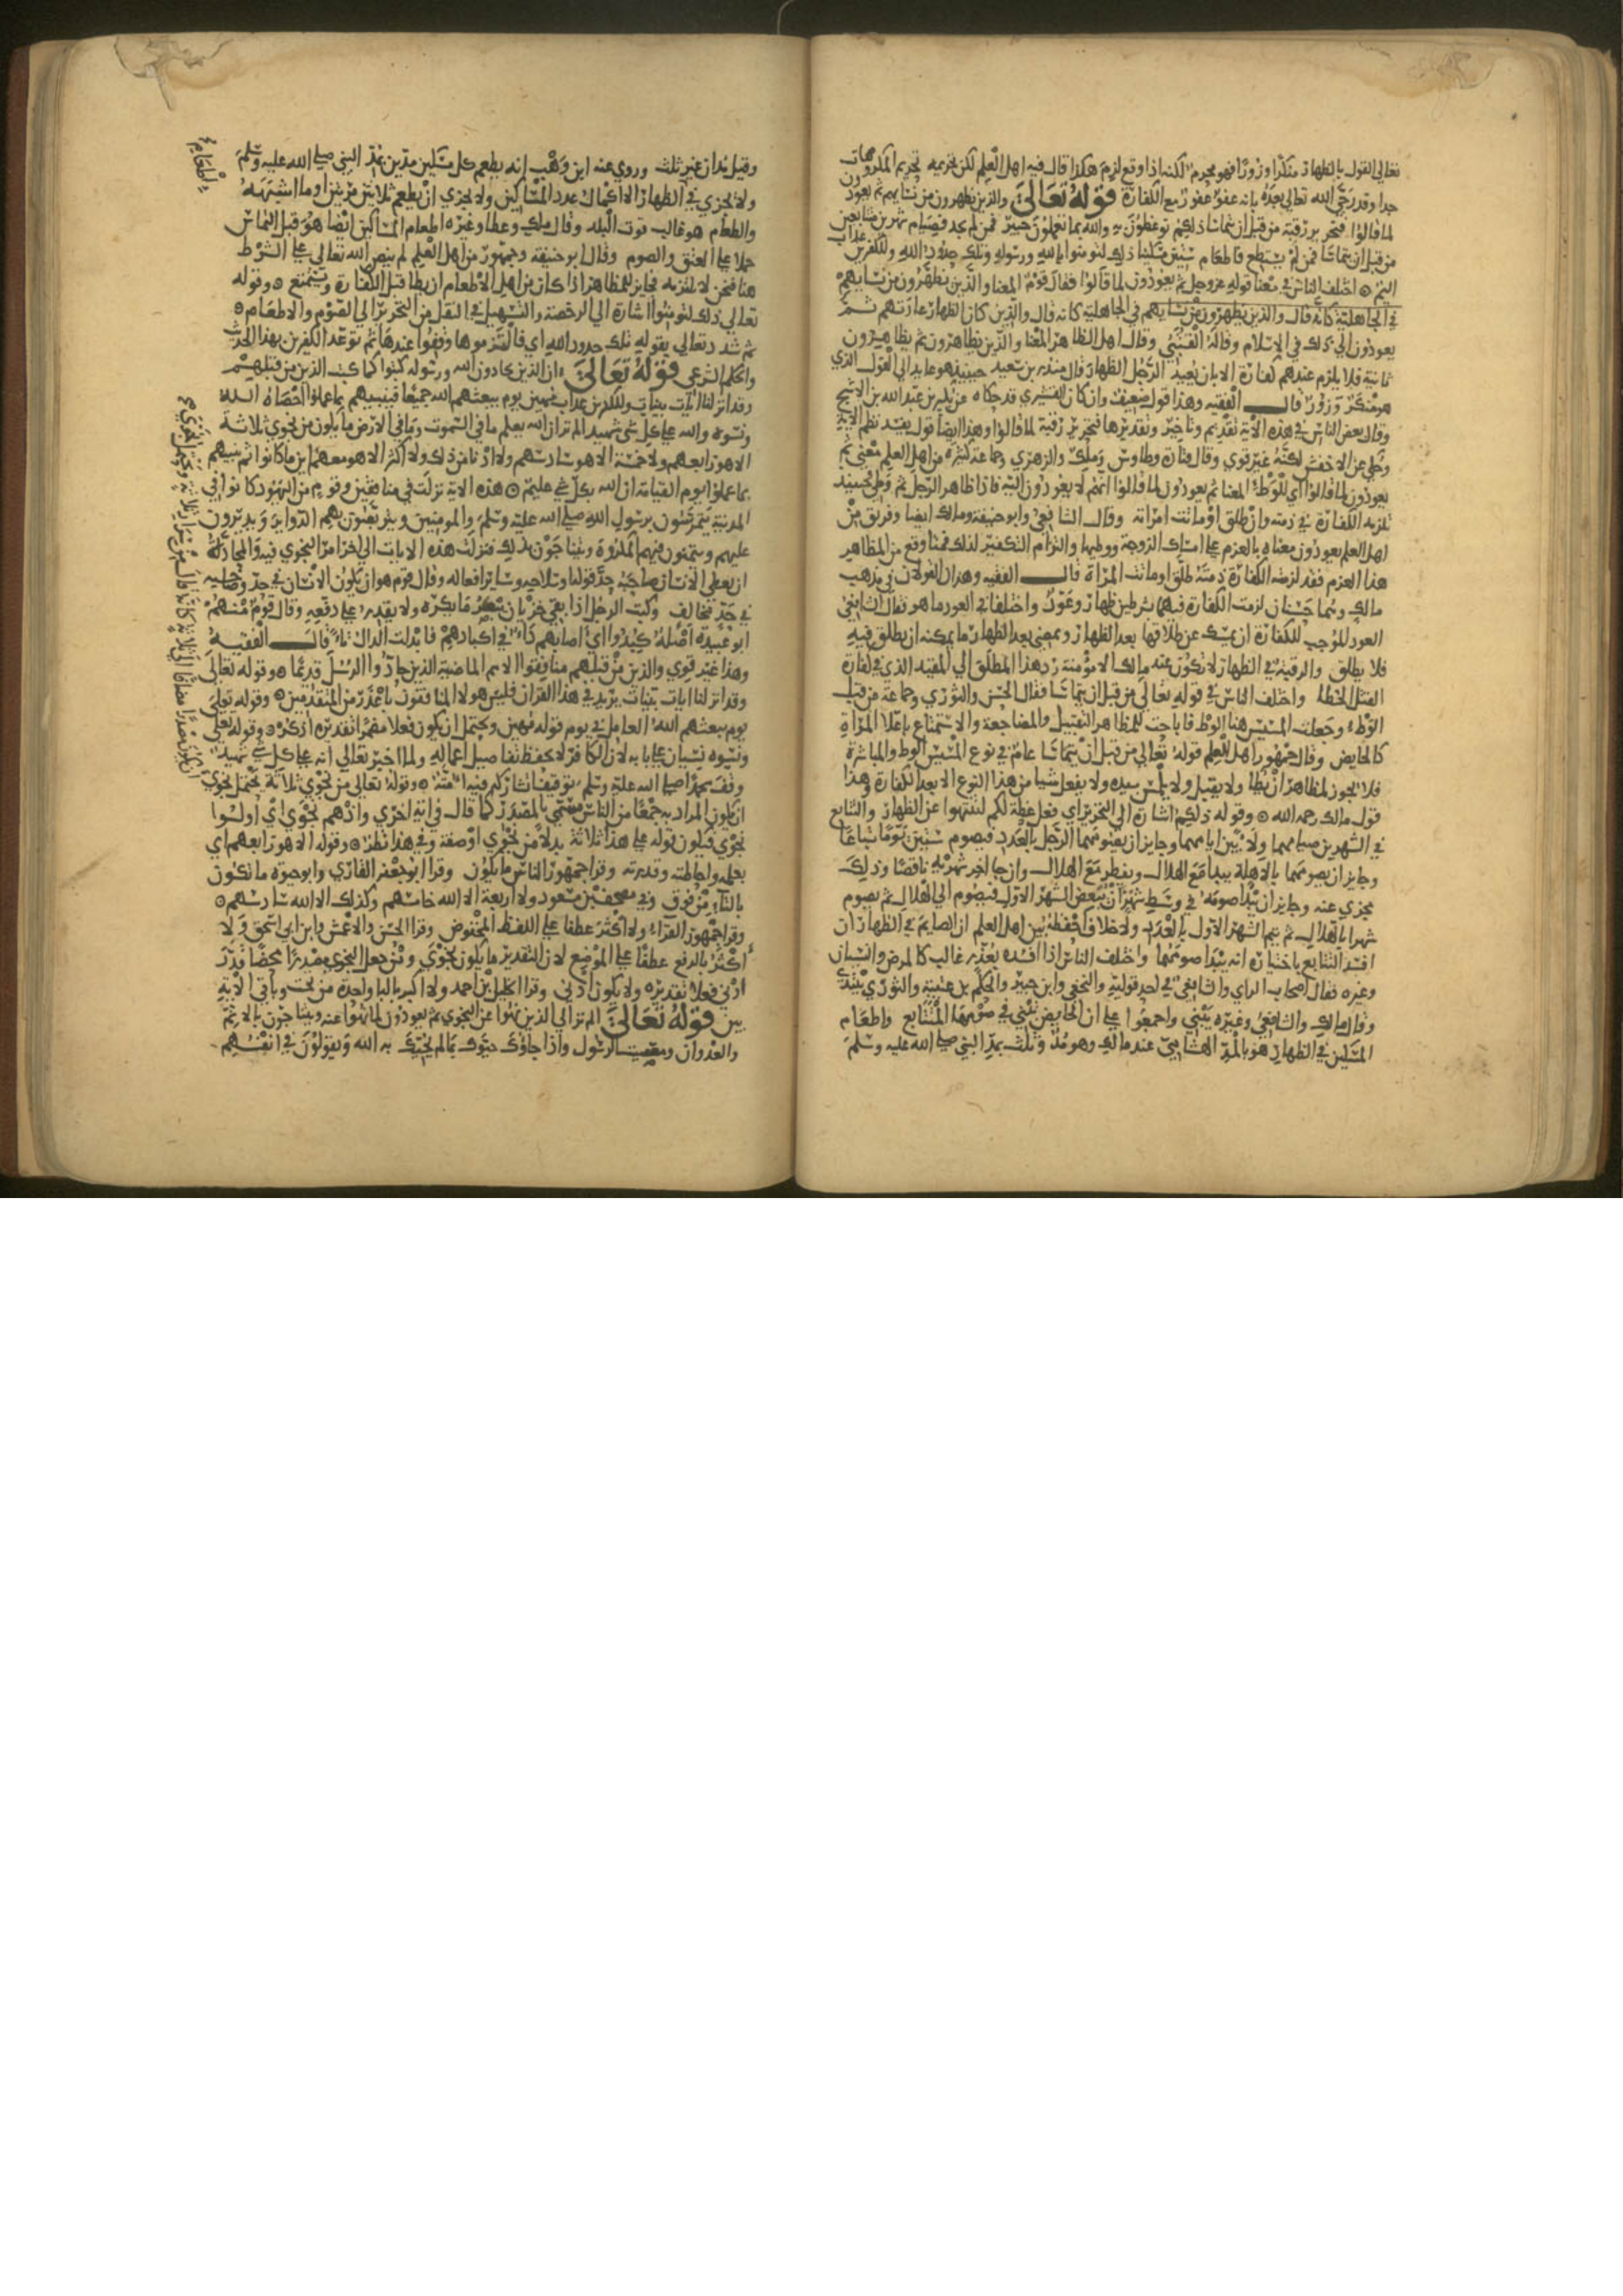 تعالى القول بالظهار منكرا وزورا فهو محرم لكنه اذا وقع لزم هكذا قال فيه اهل العلم لكن تحريمه تحريم المكروهات
جدا وقد رجى الله تعالى بعده بانه عفو غفور مع الكفارة قوله تعالى والذين يظهرون من نسايهم ثم يعودون
لما قالوا فتحرير رقبة من قبل ان يتماسا ذلكم توعظون به والله بما تعملون خبير فمن لم يجد فصيام شهرين متتابعين
من قبل ان يتماسا فمن لم يستطع فاطعام ستين مسكينا ذلك لتومنوا بالله ورسوله وتلك حدود الله وللكفرين عذاب
اليم اختلف الناس في معنا قوله عز وجل ثم يعودون لما قالوا فقال قوم المعنا والذين يظهرون من نسايهم
في الجاهلية كانه قال والذين يظهرون من نسايهم في الجاهلية كانه قال والذين كان الظهار عادتهم ثم
يعودون الى ذلك في الاسلام وقاله القتبي وقال اهل الظاهر المعنا والذين يظاهرون ثم يظاهرون
ثانية فلا يلزم عندهم كفارة الا بان يعيد الرجل الظهار قال منذر بن سعيد حينيذ هو عايد الى القول الذي
هو منكر وزور قال الفقيه وهذا قول ضعيف وان كان القشيري قد حكاه عن بكير بن عبد الله بن الاشج
وقال بعض الناس في هذه الاية تقديم وتاخير وتقديرها فتحرير رقبة لما قالوا وهذا ايضا قول يفسد نظم الاية
وحكي عن الاخفش لكنه غير قوي وقال قتادة وطاوس وملك والزهري وجماعة كثيرة من اهل العلم معنى ثم
يعودون لما قالوا اي للوطء المعنا ثم يعودون لما قالوا انهم لا يعودون اليه فاذا ظاهر الرجل ثم وطي فحينيذ
تلزمه الكفارة في ذمته وان طلق او ماتت امراته وقال الشافعي وابو حنيفة ومالك ايضا وفريق من
اهل العلم يعودون معناه بالعزم على امساك الزوجة ووطيها والتزام التكفير لذلك فمتا وقع من المظاهر
هذا العزم فقد لزمت الكفارة ذمته طلق او ماتت المراة قال الفقيه وهذان القولان في مذهب
مالك وهما حسنان لزمت الكفارة فيهما بشرطين ظهار وعود واختلفا في العود ما هو فقال الشافعي
العود الموجب للكفارة ان يمسك عن طلاقها بعد الظهار ويمضي بعد الظهار ما يمكنه ان يطلق فيه
فلا يطلق والرقبة في الظهار لا تكون عند مالك الا مؤمنة رد هذا المطلق الى المقيد الذي في كفارة
القتل الخطا واختلف الناس في قوله تعالى من قبل ان يتماسا فقال الحسن والثوري وجماعة من قبل
الوطء وجعلت المسيس هنا الوطء فاباحت للمظاهر التقبيل والمضاجعة والاستمتاع باعلا المراة
كالحايض وقال جمهور اهل العلم قوله تعالى من قبل ان يتماسا عام في نوع المسيس الوطء والمباشرة
فلا يجوز لمظاهر ان يطا ولا يقبل ولا يلمس بيده ولا يفعل شيا من هذا النوع الا بعد الكفارة وهذا
قول مالك رحمه الله وقوله ذلكم اشارة الى التحرير اي فعل عظة لكم لتنتهوا عن الظهار والتتابع
في الشهرين صيامهما ولا بين ايامهما وجايز ان يصومهما الرجل بالعدد فيصوم ستين يوما تباعا
وجايز ان يصومهما بالاهلة يبدا مع الهلال ويفطر مع الهلال وان جا اخر شهريه ناقصا وذلك
مجزي عنه وجايز ان يبدا صومه في وسط شهر ان يبعض الشهر الاول فيصوم الى الهلال ثم يصوم
شهرا بالهلال ثم يتم الشهر الاول بالعدد ولا خلاف احفظه بين اهل العلم ان الصايم في الظهار ان
افسد التتابع باختياره انه يبدا صومهما واختلف الناس اذا افسده بعذر غالب كالمرض والنسيان
وغيره فقال اصحاب الراي والشافعي في احد قوليه والنخعي وابن جبير والحكم بن عتيبة والثوري يبتدي
وقال مالك والشافعي وغيره يبني واجمعوا على ان الحايض تبني في صومها المتتابع واطعام
المسكين في الظهار هو بالمد الهشامي عند مالك وهو مد وثلث بمد النبي صلى الله عليه وسلم
وقيل مدان غير ثلث وروي عنه ابن وهب انه يطعم كل مسكين مدين بمد النبي صلى الله عليه وسلم
ولا يجزي في الظهار الا اكمال عدد المساكين ولا يجزي ان يطعم ثلاثين مرتين او ما اشبهه
والطعام هو غالب قوت البلد وقال ملك وعطا وغيره اطعام المساكين ايضا هو قبل التماس
حملا على العتق والصوم وقال ابو حنيفة وجمهور من اهل العلم لم ينص الله تعالى على الشرط
هنا فنحن لا نلتزمه فجايز للمظاهر اذا كان من اهل الاطعام ان يطا قبل الكفارة ويستمتع وقوله
تعالى ذلك لتومنوا اشارة الى الرخصة والتسهيل في النقل من التحرير الى الصوم والاطعام
ثم شدد تعالى بقوله تلك حدود الله اي فالتزموها وقفوا عندها ثم توعد الكفرين بهذا الحديث
والحكم الشرعي قوله تعالى ان الذين يحادون الله ورسوله كبتوا كما كبت الذين من قبلهم
وقد انزلنا ايات بينات وللكفرين عذاب مهين يوم يبعثهم الله جميعا فينبيهم بما عملوا احصاه الله
ونسوه والله على كل شي شهيد الم تر ان الله يعلم ما في السموت وما في الارض ما يكون من نجوى ثلاثة
الا هو رابعهم ولا خمسة الا هو سادسهم ولا ادنا من ذلك ولا اكثر الا هو معهم اين ما كانوا ثم ينبيهم
بما عملوا يوم القيامة ان الله بكل شي عليم هذه الاية نزلت في منافقين وقوم من اليهود كانوا في
المدينة يتمرسون برسول الله صلى الله عليه وسلم والمومنين ويتربصون بهم الدواير ويدبرون
عليهم ويتمنون فيهم المكروه ويتناجون بذلك فنزلت هذه الايات الى اخر امر النجوى فيه والمحادة
ان يعطي الانسان صاحبه حد قوله او سلاحه وساير افعاله وقال قوم هو ان يكون الانسان في حد وصاحبه
في حد مخالف وكبت الرجل اذا بقي خزيان يبصر ما يكره ولا يقدر على دفعه وقال قوم منهم
ابو عبيدة اصله كبدوا اي اصابهم داء في اكبادهم فابدلت الدال تاء قال الفقيه
وهذا غير قوي والذين من قبلهم منافقوا الامم الماضية الذين حادوا الرسل قديما وقوله تعالى
وقد انزلنا ايات بينات يريد في هذا القران فليس هولا المنافقون باعذر من المتقدمين وقوله تعلى
يوم يبعثهم الله العامل في يوم قوله مهين ويحتمل ان يكون فعلا مضمرا تقديره اذكر وقوله تعلى
ونسوه نسيان على بابه لان الكافر لا يحفظ تفاصيل اعماله ولما اخبر تعالى انه على كل شي شهيد
وقف محمدا صلى الله عليه وسلم توقيفا تشاركه فيه امته وقوله تعالى من نجوى ثلاثة يحتمل نجوى
ان يكون المراد به جمعا من الناس مسمى بالمصدر كما قال في اية اخرى واذ هم نجوى اي اولوا
نجوى فيكون قوله على هذا ثلاثة بدلا من نجوى او صفة وفي هذا نظر وقوله الا هو رابعهم اي
بعلمه واحاطته وقدرته وقرا جمهور الناس ما يكون وقرا ابو جعفر القاري وابو حيوه ما تكون
بالتاء من فوق وفي مصحف ابن مسعود ولا اربعة الا الله خامسهم وكذلك الا الله سادسهم
وقرا جمهور القراء ولا اكثر عطفا على اللفظ المخفوض وقرا الحسن والاعمش وابن ابي اسحق ولا
اكثر بالرفع عطفا على الموضع لان التقدير ما يكون نجوى ومن جعل النجوى مصدرا محضا قدر
ادنى فعلا تقديره ولا يكون ادنى وقرا الخليل بن احمد ولا اكبر بالبا واحدة من تحت وباقي الاية
بين قوله تعالى الم تر الى الذين نهوا عن النجوى ثم يعودون لما نهوا عنه ويتناجون بالاثم
والعدوان ومعصيت الرسول واذا جاؤك حيوك بما لم يحيك به الله ويقولون في انفسهم
الطعام